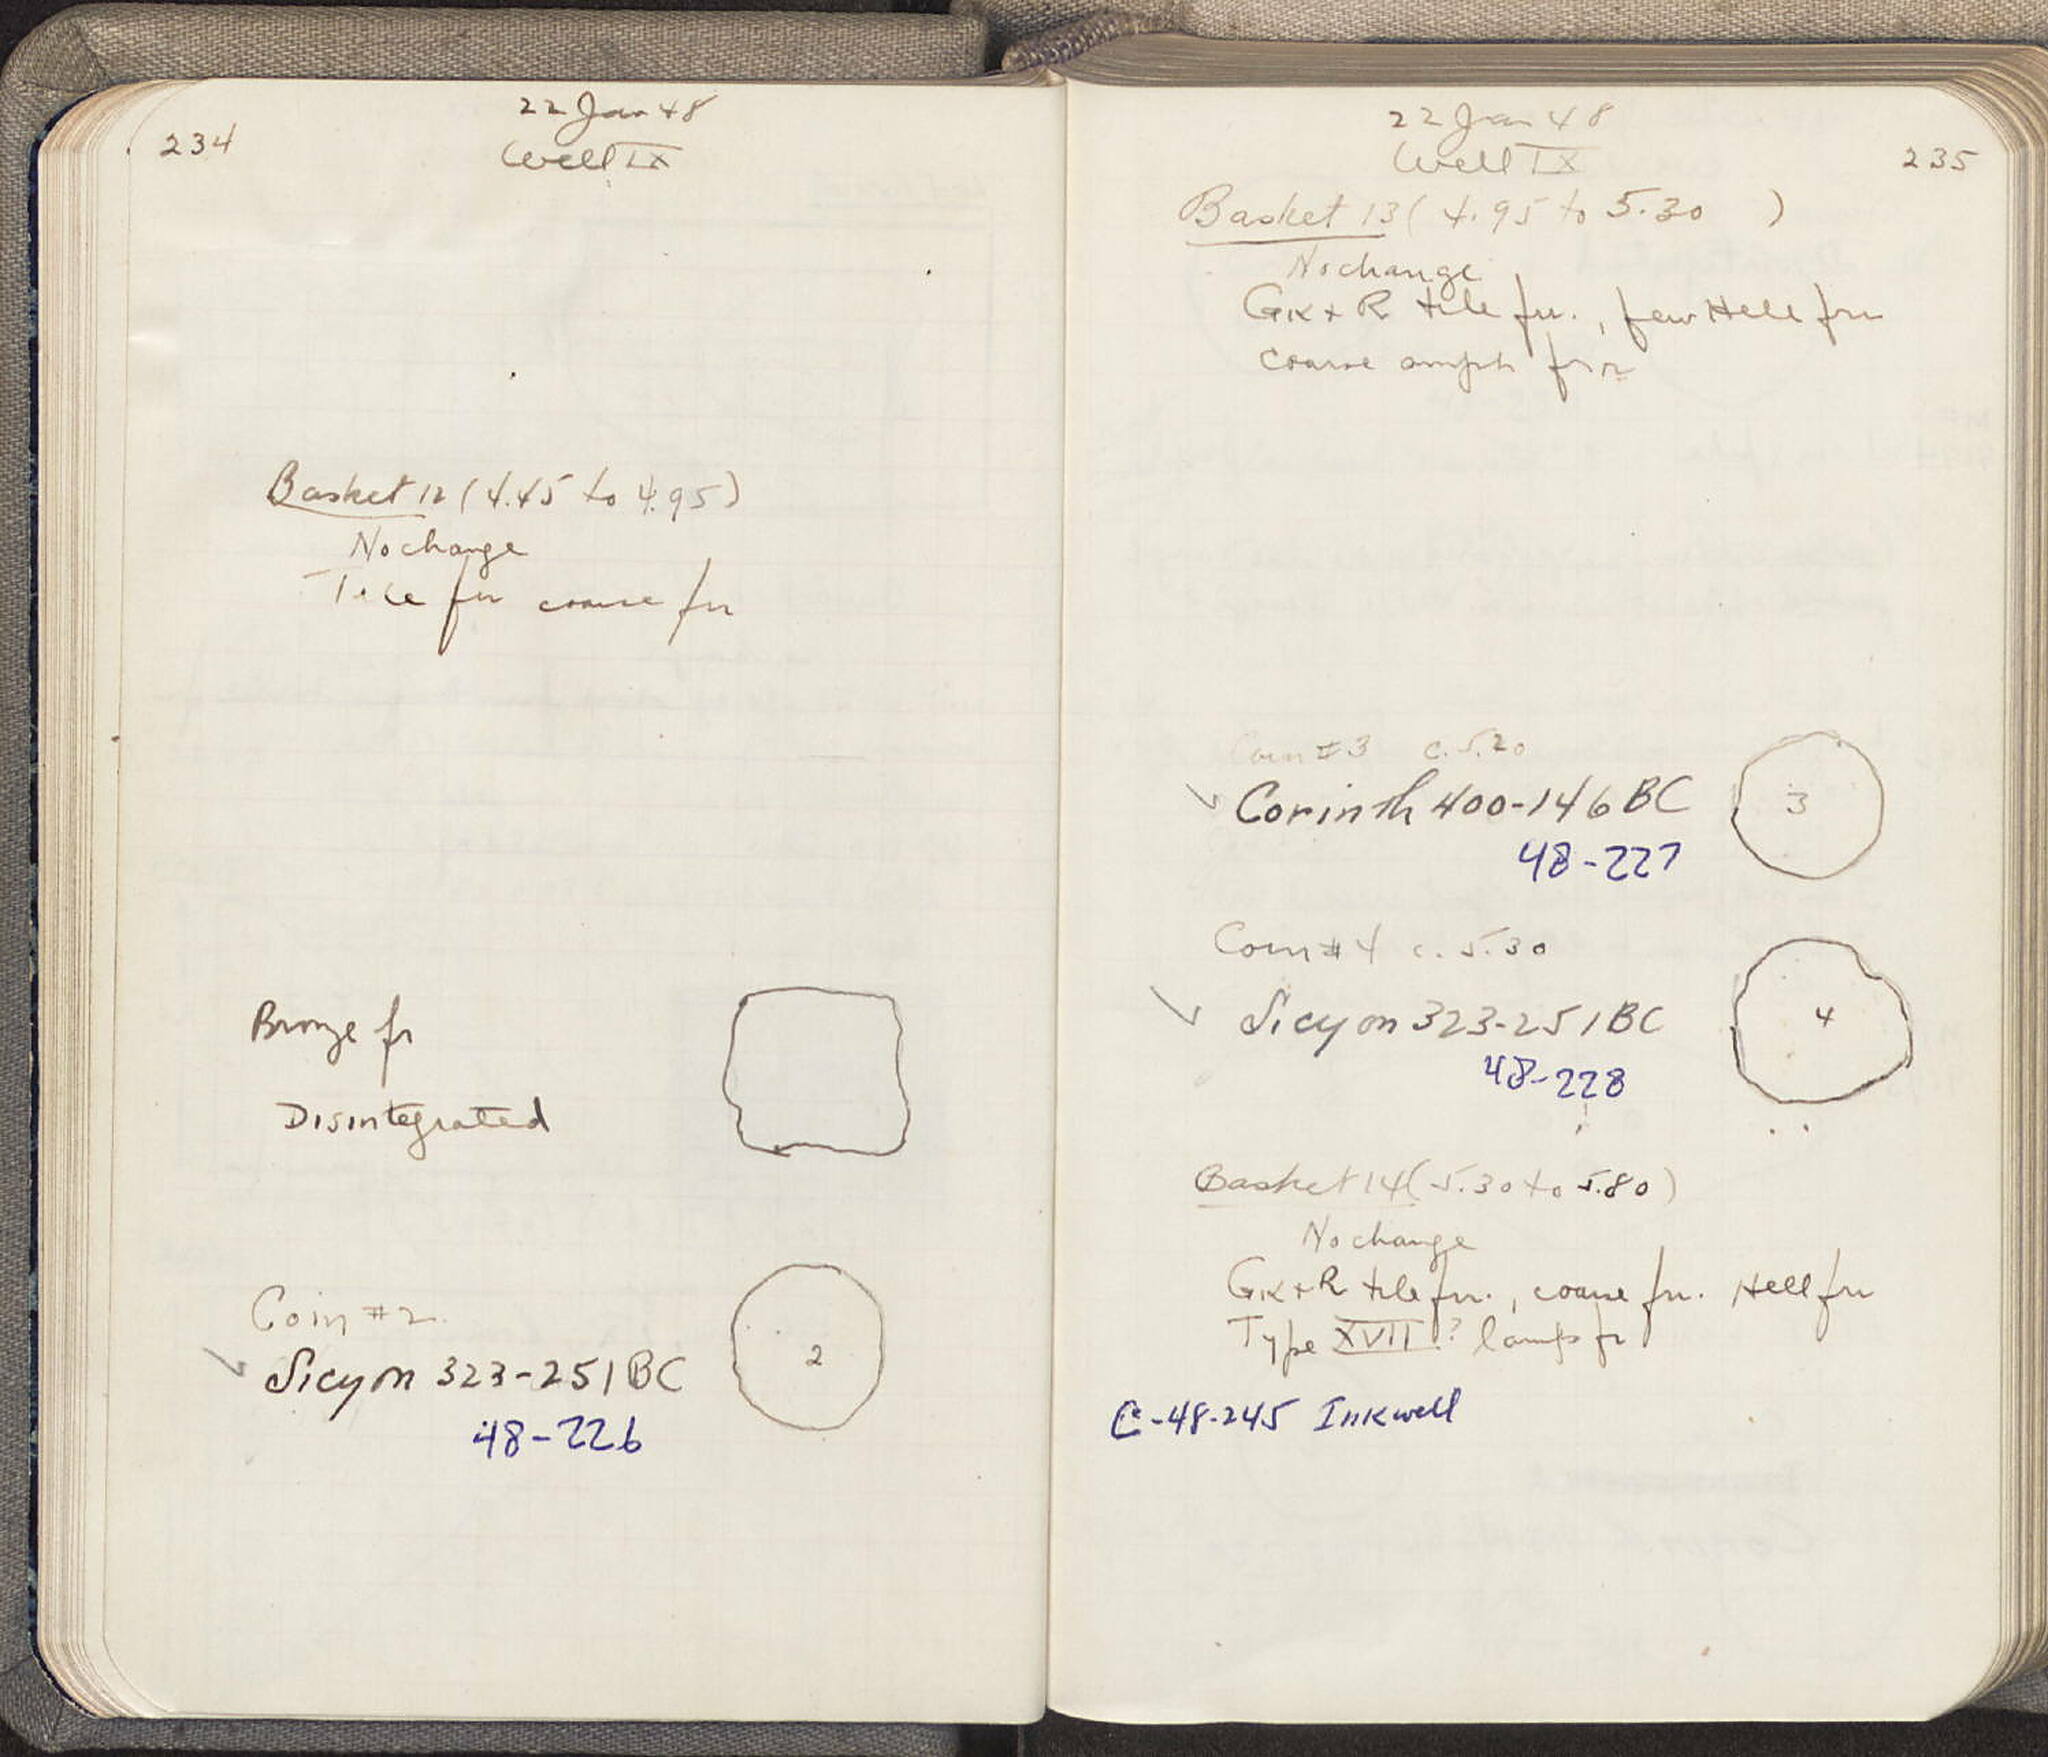 234
22 Jan 48
Well IX
Basket 12 (4.45 to 4.95)
No change
Tile frr coarse frr
Bronze fr
Disintegrated
Coin #2
Sicyon 323-251 BC
48-226
2
22 Jan 48
Well IX
235
Basket 13 (4.95 to 5.30 )
No change
Gk + R tile frr., few Hell frr
coarse amph frr
Coin #3 c. 5.20
Corinth 400-146 BC
48-227
3
Coin #4 c. 5.30
Sicyon 323-251 BC
48-228
4
Basket 14 (5.30 to 5.80)
No change
Gk + R tile frr., coarse frr. Hell frr
Type XVII? lamp fr
C-48-245 Inkwell